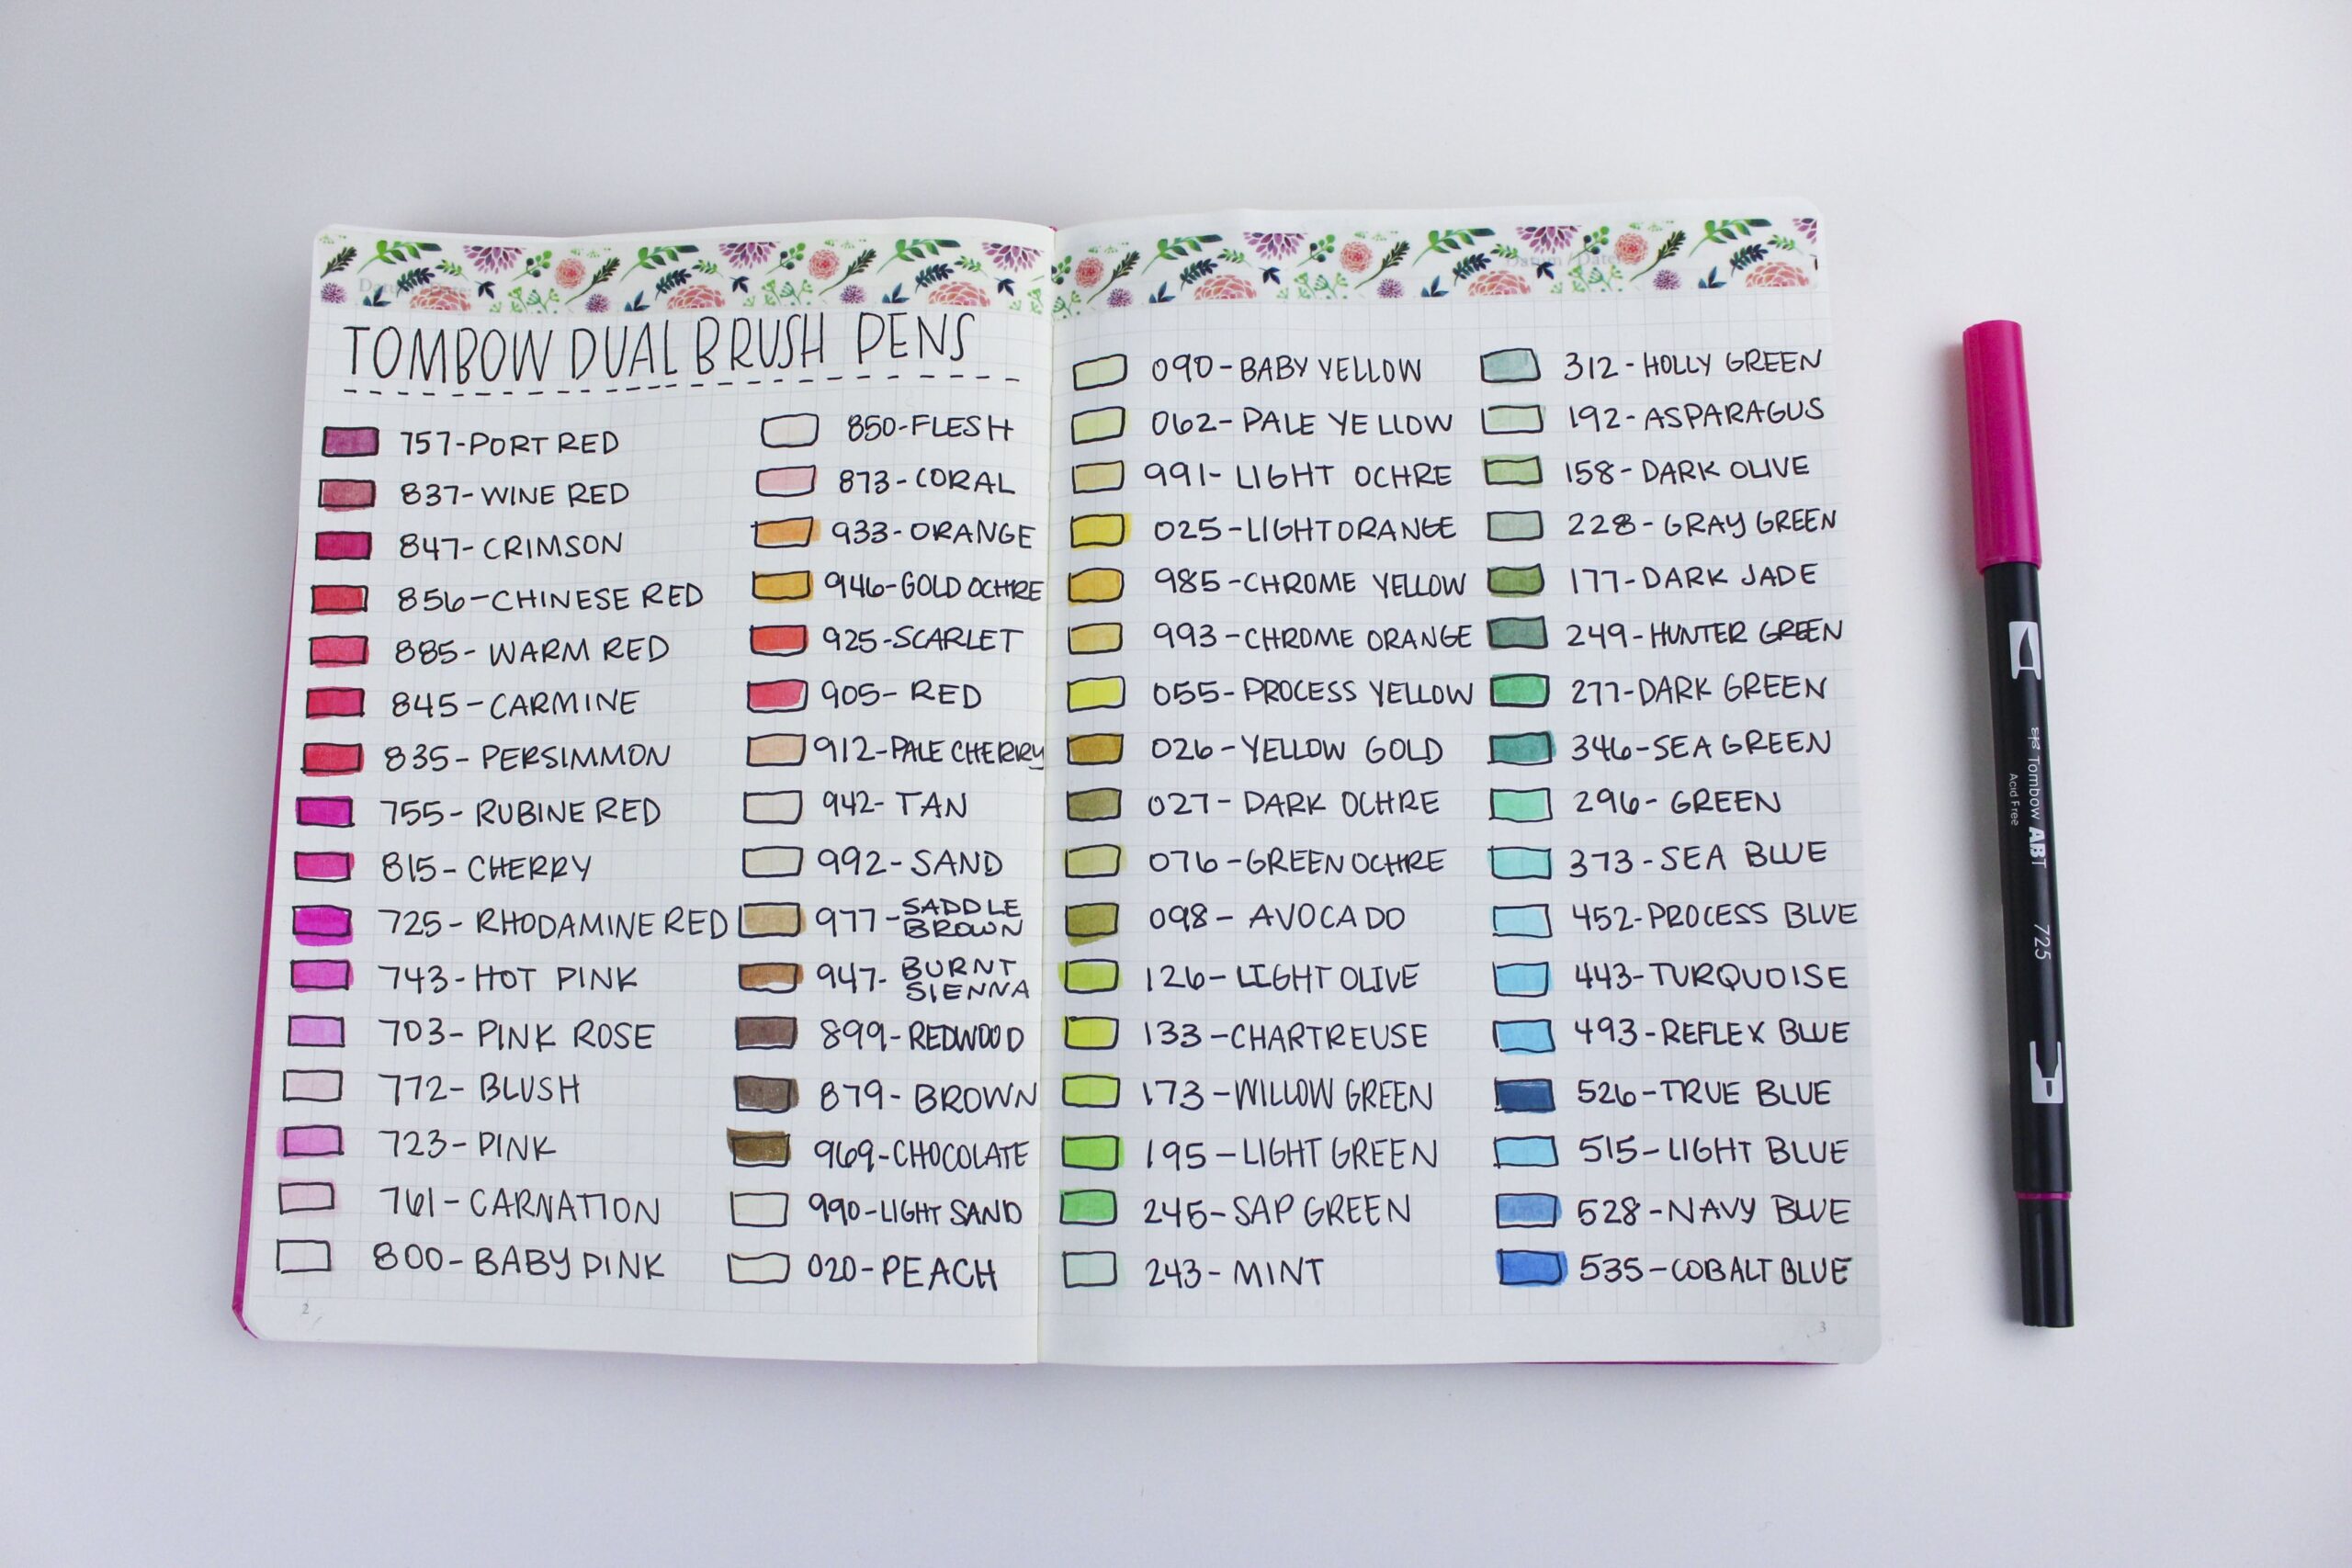 TOMBOW DUAL BRUSH PENS
757-PORT RED
837-WINE RED
847-CRIMSON
856-CHINESE RED
885-WARM RED
845-CARMINE
835-PERSIMMON
755-RUBINE RED
815-CHERRY
725-RHODAMINE RED
743-HOT PINK
703-PINK ROSE
772-BLUSH
723-PINK
761-CARNATION
800-BABY PINK
2
850-FLESH
873-CORAL
933-ORANGE
946-GOLD OCHRE
925-SCARLET
905-RED
912-PALE CHERRY
942-TAN
992-SAND
977-SADDLE
BROWN
947-BURNT
SIENNA
899-REDWOOD
879-BROWN
969-CHOCOLATE
990-LIGHT SAND
020-PEACH
090-BABY YELLOW
062-PALE YELLOW
991-LIGHT OCHRE
025-LIGHT ORANGE
985-CHROME YELLOW
993-CHROME ORANGE
055-PROCESS YELLOW
026-YELLOW GOLD
027-DARK OCHRE
076-GREEN OCHRE
098-AVOCADO
126-LIGHT OLIVE
133-CHARTREUSE
173-WILLOW GREEN
195-LIGHT GREEN
245-SAP GREEN
243-MINT
Datum / Date:
312-HOLLY GREEN
192-ASPARAGUS
158-DARK OLIVE
228-GRAY GREEN
177-DARK JADE
249-HUNTER GREEN
277-DARK GREEN
346-SEA GREEN
296-GREEN
373-SEA BLUE
452-PROCESS BLUE
443-TURQUOISE
493-REFLEX BLUE
526-TRUE BLUE
515-LIGHT BLUE
528-NAVY BLUE
535-COBALT BLUE
3
Tombow ABT 725
Acid Free